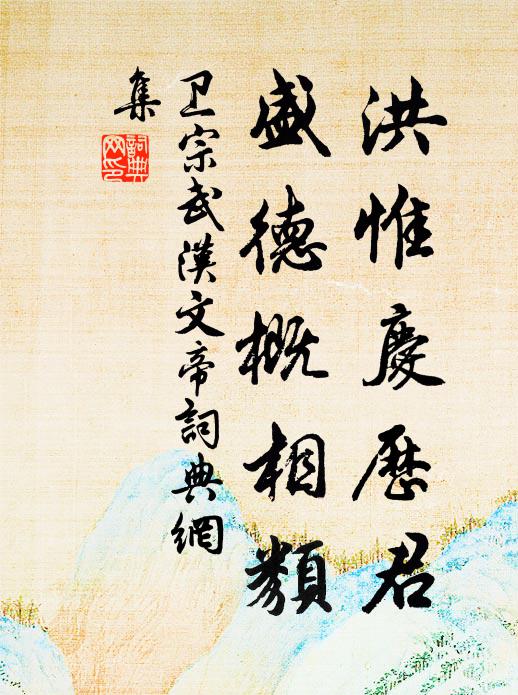 洪惟慶歷君
盛德概相類
卫宗武漢文帝詞典網
集
詞典
网印